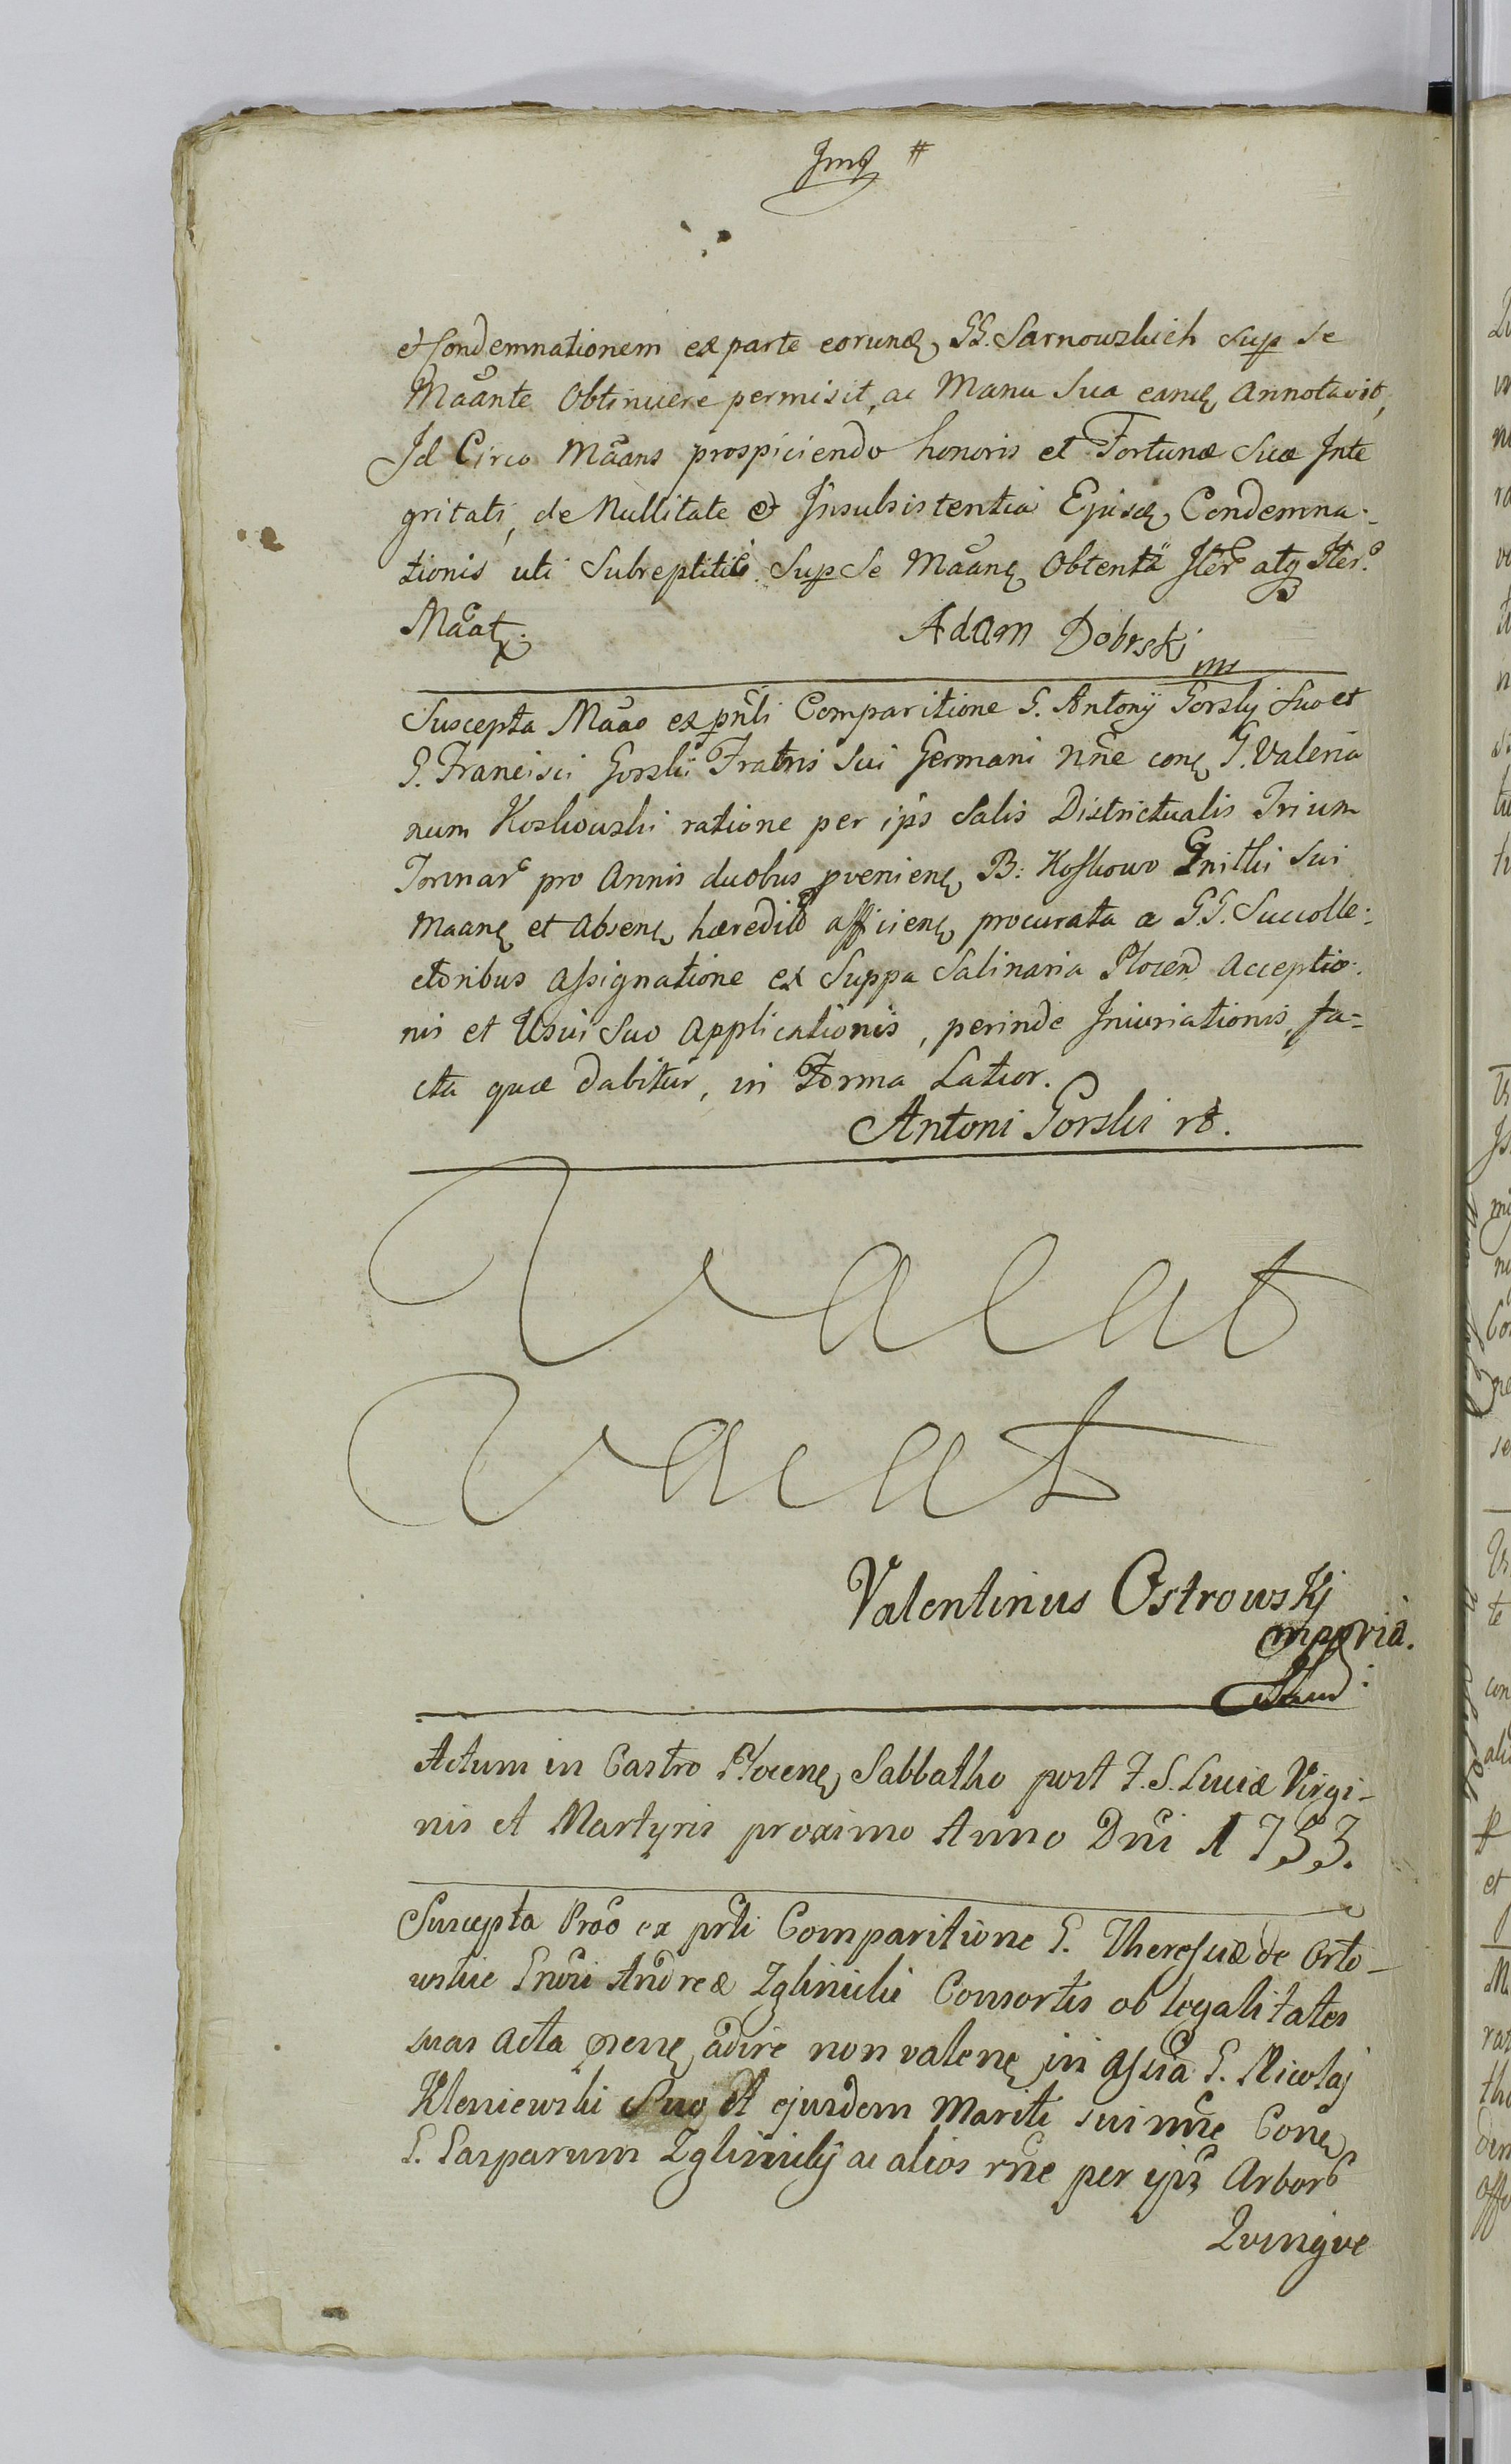 Jmq #
et Condemnationem ex parte eorund. GG. Sarnowskich Sup se
Mãante Obtinuere permisit, ac Manu Sua eand. Annotavit,
Id Circo Mãans prospiciendo honoris et Fortunæ Suæ Inte
gritati, de Nullitate et Insubsistentia Ejusd. Condemna-
tionis uti Subreptitiè Sup Se Mãan. Obtentæ Iter. atq. Iter.
Mãat.
Adam Dobrski
Suscepta Mãao ex pñli Comparitione G. Antonij Gorskij Suo et
G. Francisci Gorskii Fratris Sui Germani nñe con. G. Valeria
num Koskowski ratione per ips Salis Districtualis Trium
Tonnar. pro Annis duobus pvenien. B: Koskowo Gnithi Sui
Maan. et Absen. hæredit. afficien. procurata a GG. Succolle-
ctoribus Assignatione ex Suppa Salinaria Plocen. Acceptio-
nis et Usui Suo Applicationis, perinde Iniuriationis, fa-
cta quæ dabitur, in Forma Latior.
Antoni Gorski
Vacat
Vacat
Valentinus Ostrowskj
mppria.
Actum in Castro Plocen. Sabbatho post F. S. Luciæ Virgi-
nis et Martyris proximo Anno Dñi 1753.
Suscepta Prão ex prli Comparitione G. Theresiæ de Orto-
wskie Gnõsi Andreæ Zglinicki Consortis ob legalitates
suas Acta pren. adire non valen. in assia G. Nicolaj
Kleniewski Suo et ejusdem Mariti sui nñe Con.
G. Gasparum Zglinickij ac alios rñe per ips Arbor.
Quinque